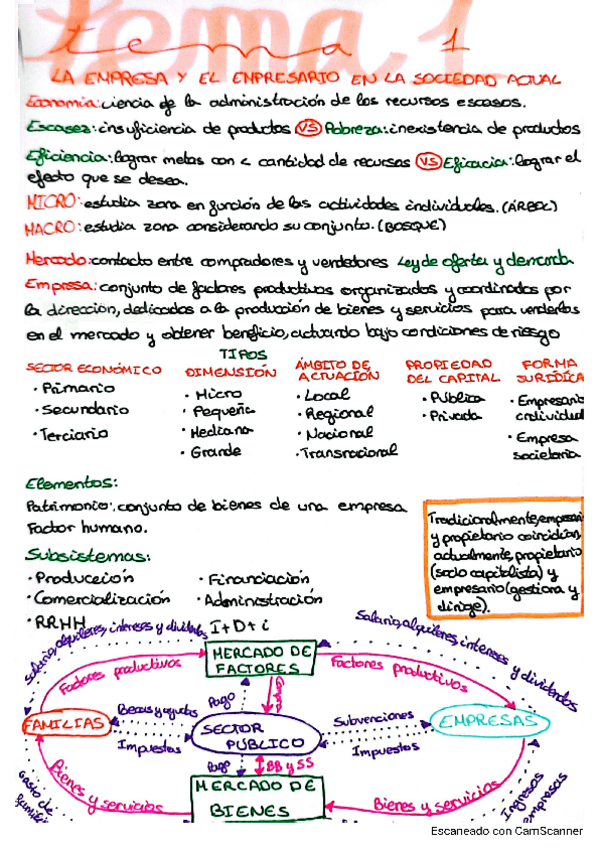 tema 1
tema 1
LA EMPRESA Y EL EMPRESARIO EN LA SOCIEDAD ACTUAL
Economía: ciencia de la administración de los recursos escasos.
Escasez: insuficiencia de productos VS Pobreza: inexistencia de productos
Eficiencia: lograr metas con < cantidad de recursos VS Eficacia: lograr el
efecto que se desea.
MICRO: estudia zona en función de las actividades individuales. (ÁRBOL)
MACRO: estudia zona considerando su conjunto. (BOSQUE)
Mercado: contacto entre compradores y vendedores Ley de oferta y demanda
Empresa: conjunto de factores productivos organizados y coordinados por
la dirección, dedicados a la producción de bienes y servicios para venderlos
en el mercado y obtener beneficio, actuando bajo condiciones de riesgo
TIPOS
SECTOR ECONÓMICO
· Primario
· Secundario
· Terciario
DIMENSIÓN
· Micro
· Pequeña
· Mediana
· Grande
ÁMBITO DE
ACTUACIÓN
· Local
· Regional
· Nacional
· Transnacional
PROPIEDAD
DEL CAPITAL
· Pública
· Privada
FORMA
JURÍDICA
· Empresario
individual
· Empresa
societaria
Elementos:
Patrimonio: conjunto de bienes de una empresa
Factor humano.
Tradicionalmente, empresari
y propietario coincidían,
actualmente, propietario
(socio capitalista) y
empresario (gestiona y
dirige).
Subsistemas:
· Producción
· Comercialización
· RRHH
· Financiación
· Administración
I+D+i
Salario, alquileres, intereses y dividendos
MERCADO DE
FACTORES
Salario, alquileres, intereses y dividendos
Factores productivos
Factores productivos
Pago
FAMILIAS
Becas y ayudas
Impuestos
SECTOR
PÚBLICO
Subvenciones
Impuestos
EMPRESAS
Pago
BB y SS
Gasto de
Bienes y servicios
MERCADO DE
BIENES
Bienes y servicios
Ingresos
empresas
Escaneado con CamScanner